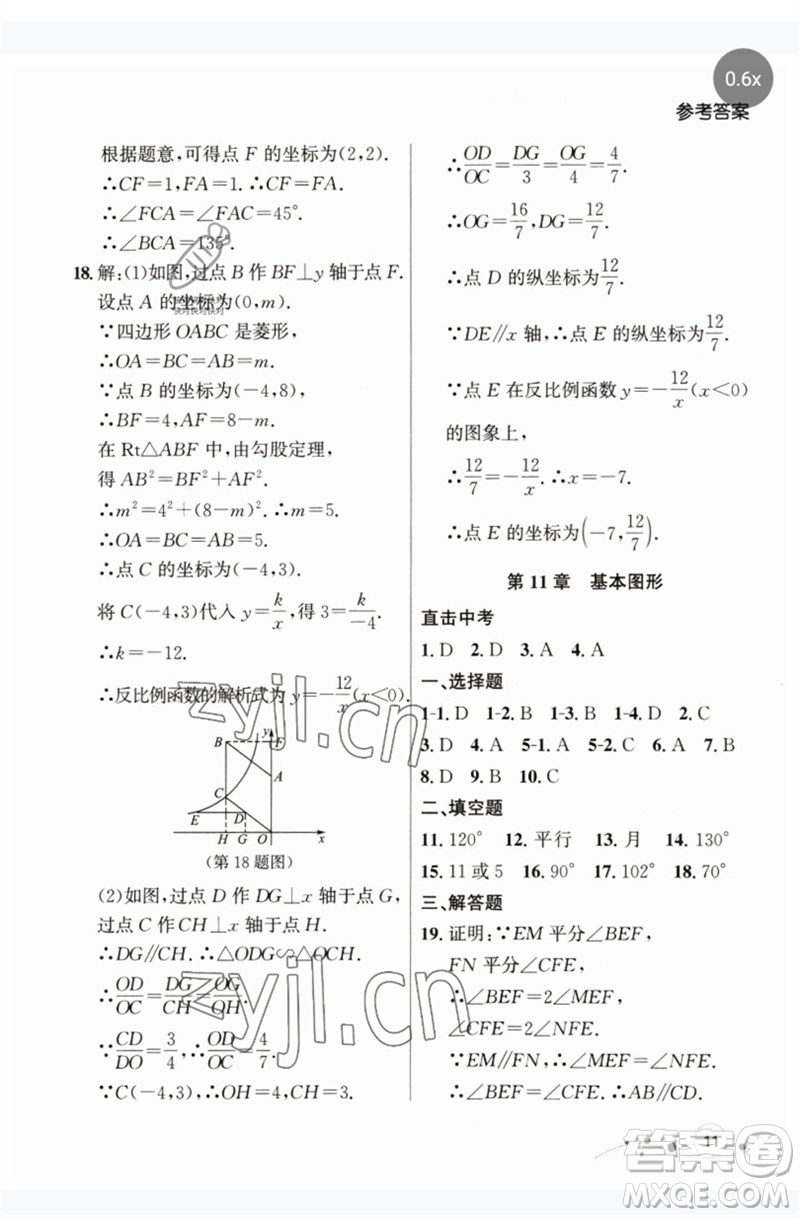 0.6x
参考答案
根据题意,可得点 F 的坐标为(2,2).
∴CF=1,FA=1. ∴CF=FA.
∴∠FCA=∠FAC=45°.
∴∠BCA=135°.
18. 解:(1)如图,过点 B 作 BF⊥y 轴于点 F.
设点 A 的坐标为(0,m).
∵四边形 OABC 是菱形,
∴OA=BC=AB=m.
∵点 B 的坐标为(-4,8),
∴BF=4,AF=8-m.
在 Rt△ABF 中,由勾股定理,
得 AB²=BF²+AF².
∴m²=4²+(8-m)². ∴m=5.
∴OA=BC=AB=5.
∴点 C 的坐标为(-4,3).
将 C(-4,3)代入 y=k/x,得 3=k/-4.
∴k=-12.
∴反比例函数的解析式为 y=-12/x(x<0).
B y F
A
C
E D
H G O x
(第 18 题图)
(2)如图,过点 D 作 DG⊥x 轴于点 G,
过点 C 作 CH⊥x 轴于点 H.
∴DG∥CH. ∴△ODG∽△OCH.
∴OD/OC=DG/CH=OG/OH.
∵CD/DO=3/4,∴OD/OC=4/7.
∵C(-4,3),∴OH=4,CH=3.
∴OD/OC=DG/3=OG/4=4/7.
∴OG=16/7,DG=12/7.
∴点 D 的纵坐标为12/7.
∵DE∥x 轴,∴点 E 的纵坐标为12/7.
∵点 E 在反比例函数 y=-12/x(x<0)
的图象上,
∴12/7=-12/x. ∴x=-7.
∴点 E 的坐标为(-7,12/7).
第 11 章 基本图形
直击中考
1. D 2. D 3. A 4. A
一、选择题
1-1. D 1-2. B 1-3. B 1-4. D 2. C
3. D 4. A 5-1. A 5-2. C 6. A 7. B
8. D 9. B 10. C
二、填空题
11. 120° 12. 平行 13. 月 14. 130°
15. 11 或 5 16. 90° 17. 102° 18. 70°
三、解答题
19. 证明:∵EM 平分∠BEF,
FN 平分∠CFE,
∴∠BEF=2∠MEF,
∠CFE=2∠NFE.
∵EM∥FN,∴∠MEF=∠NFE.
∴∠BEF=∠CFE. ∴AB∥CD.
11
快对快对快对
zyjl.cn
zyjl.cn
答案圈
MXQE.COM